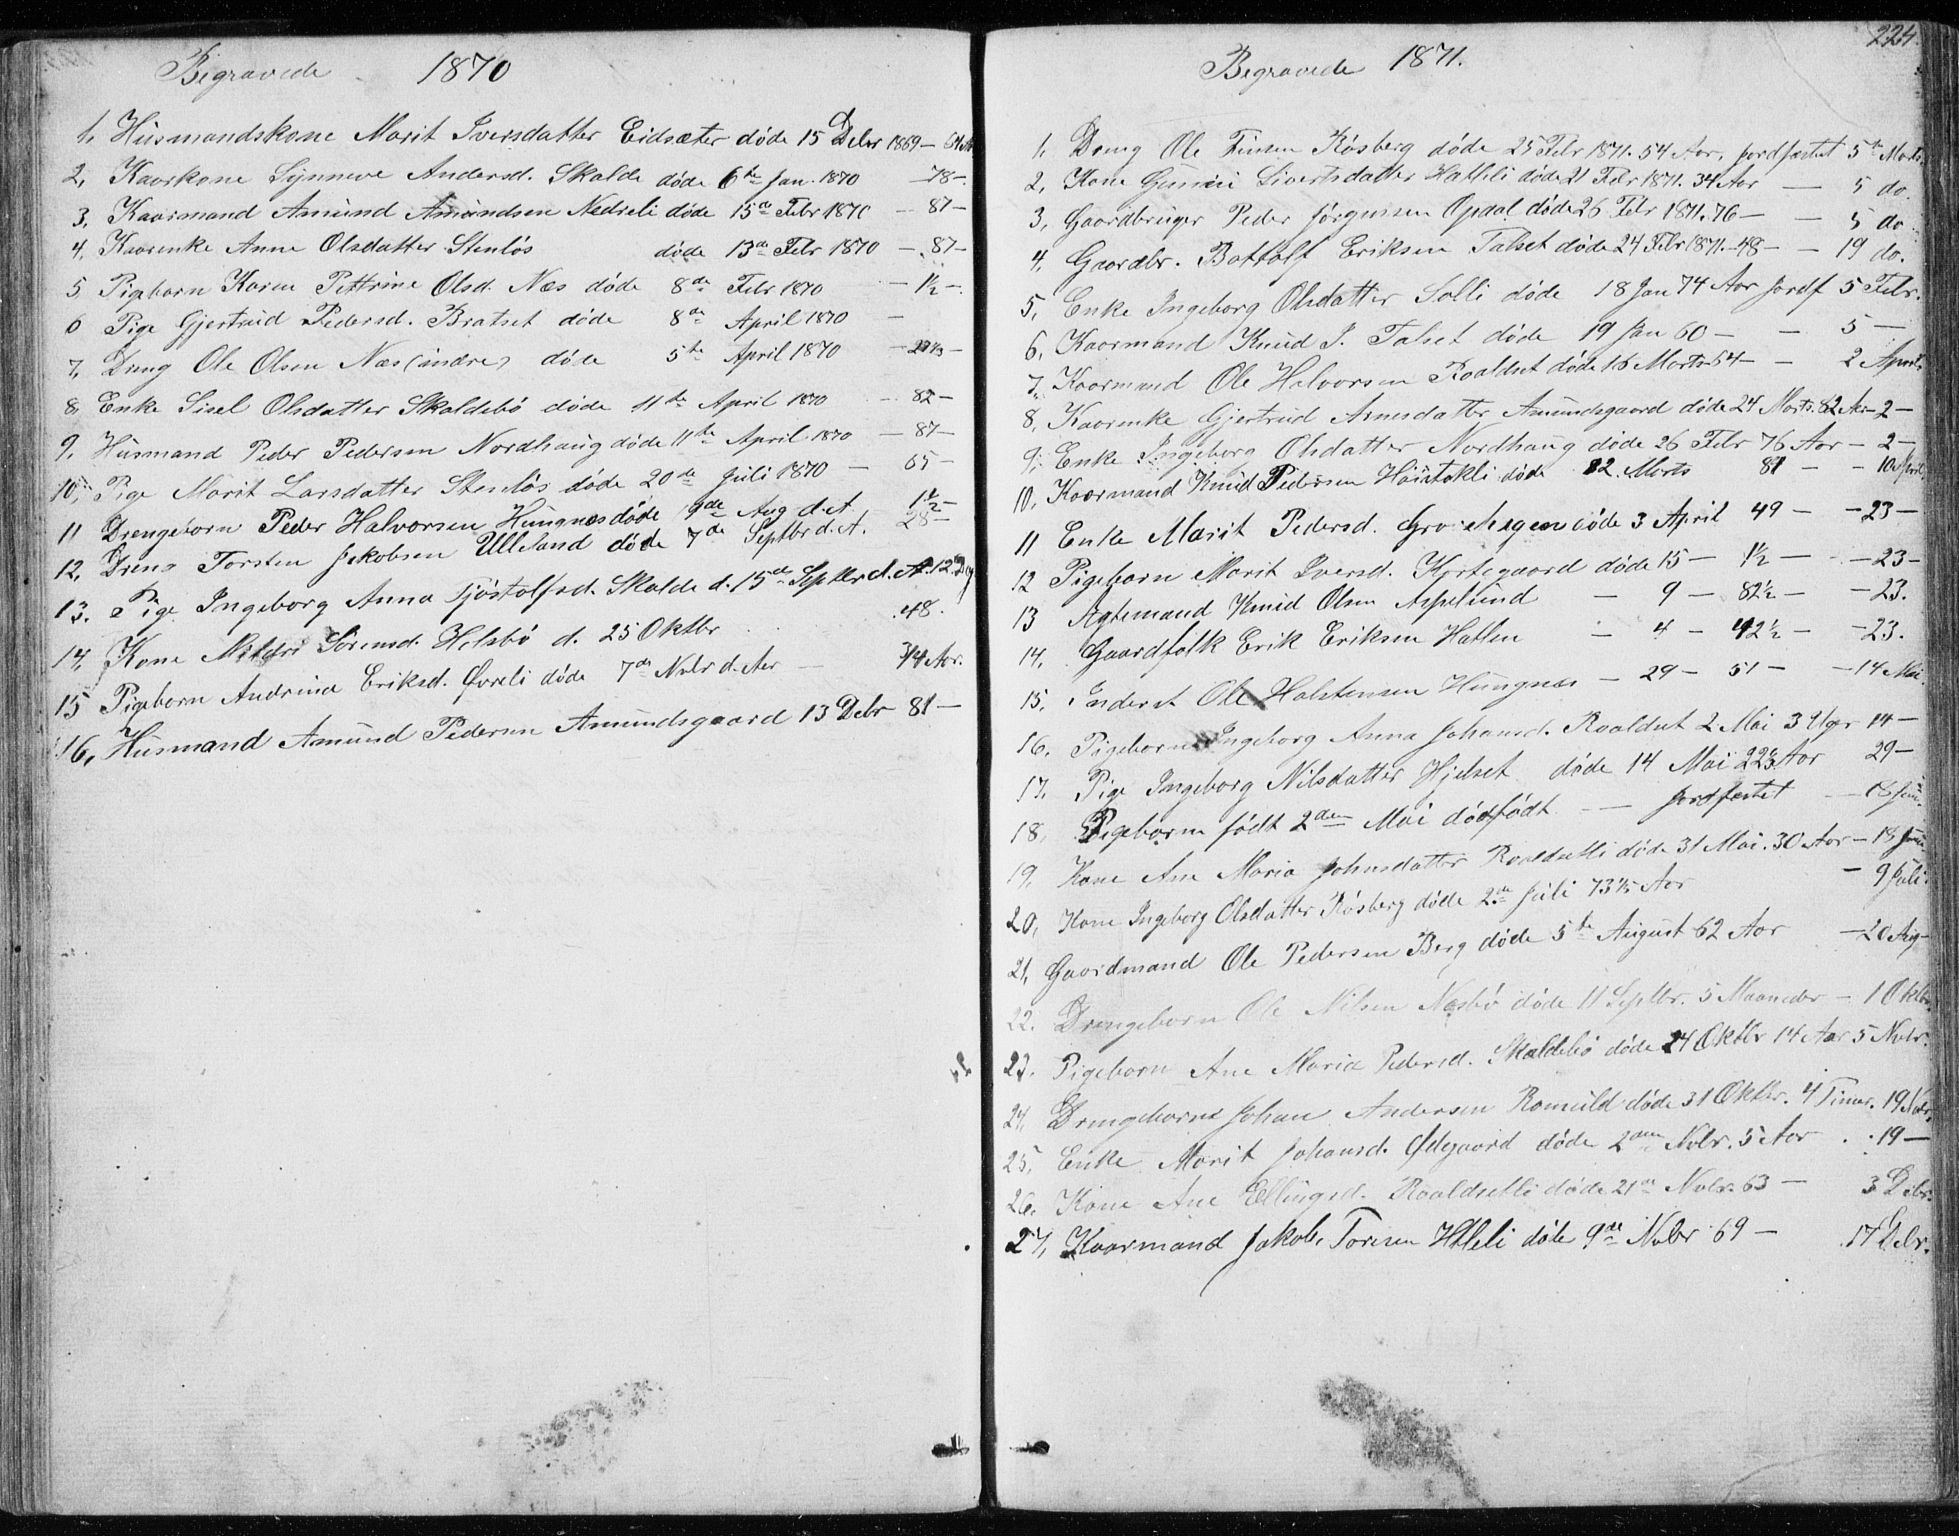 Begravede 1870
1, Husmandskone Marit Iversdatter Eidsæter døde 15 Debr 1869 —
2, Kaarkone Synneve Andersd. Skalde døde 6te Jan. 1870 — 78 —
3, Kaarmand Amund Amundsen Nedreli døde 15de Febr 1870 — 87 —
4, Kaarenke Anne Olsdatter Stenløs døde 13de Febr 1870 — 87 —
5 Pigebarn Karen Pettrine Olsd. Næs døde 8de Febr 1870 — 1½ —
6 Pige Gjertrud Pedersd. Bratset døde 8de April 1870 —
7, Dreng Ole Olsen Næs (indre) døde 5te April 1870 —
8, Enke Sisel Olsdatter Skaldebø døde 11te April 1870 — 82 —
9, Husmand Peder Pedersen Nordhaug døde 11te April 1870 — 87 —
10, Pige Marit Larsdatter Stenløs døde 20de Juli 1870 — 65 —
11 Drengebarn Peder Halvorsen Hungnes døde 9de Aug d.A. 1½ —
12, Dreng Torsten Jakobsen Ulleland døde 7de Septbr d.A. 28 —
13. Pige Ingeborg Anna Tjøstolfsd. Skalde d. 15de Septbr d. A. 12 Dg
14, Kone Mildri Sørensd. Helsbø d. 25 Oktbr 48.
15 Pigebarn Andrina Eriksd. Øvreli døde 7de Nvbr d. Aar — ¾ Aar.
16, Husmand Amund Pedersen Amundsgaard 13 Debr 81 —
224.
Begravede 1871.
1, Dreng Ole Finsen Røsberg døde 25 Febr 1871. 54 Aar, jordfæstet 5te Marts
2, Kone Gunniri Sivertsdatter Hatleli døde 21 Febr 1871. 34 Aar — 5 do.
3, Gaardbruger Peder Jørgensen Opdal døde 26 Febr 1871. 76 — — 5 do
4, Gaardbr. Bottolf Eriksen Talset døde 24 Febr 1871. 48 — — 19 do.
5, Enke Ingeborg Olsdatter Solli døde 18 Jan 74 Aar Jordf 5 Febr.
6, Kaarmand Knud J. Talset døde 19 Jan 60 — — 5 —
7, Kaarmand Ole Halvorsen Roaldset døde 16 Marts 54 — — 2 April
8, Kaarenke Gjertrud Arnesdatter Amundsgaard døde 24 Marts. 82 Aar — 2 —
9, Enke Ingeborg Olsdatter Nordhaug døde 26 Febr 76 Aar — 2 —
10. Kaarmand Knud Pedersen døde 22. Marts 81 — — 10 April
11 Enke Marit Pedersd. døde 3 April 49 — — 23 —
12 Pigebarn Marit Iversd. Kortgaard døde 15 — 1½ — — 23 —
13 Ægtemand Knud Olsen Aspelund — 9 — 82½ — — 23.
14, Gaardfolk Erik Eriksen Hatlen — 4 — 42½ — — 23.
15, Inderst Ole Halstensen Hungnes — 29 — 51 — — 14 Mai.
16. Pigebarn Ingeborg Anna Johansd. Roaldset 2 Mai 3 Uger 14 —
17, Pige Ingeborg Nilsdatter Hjelset døde 14 Mai Aar 29 —
18, Pigebarn født 2den Mai dødfødt — Jordfæstet — 18 Juni.
19, Kone Ane Maria Johnsdatter Roaldsetli døde 31 Mai. 30 Aar — 18 Juni.
20, Kone Ingeborg Olsdatter Røsberg døde 2de Juli Aar — 9 Juli.
21, Gaardmand Ole Pedersen Berg døde 5te August 62 Aar — 20 Aug —
22. Drengebarn Ole Nilsen Nesbø døde 11 Septbr. 5 Maaneder — 1 Oktbr.
23. Pigebarn Ane Maria Pedersd. Skaldebø døde 24 Oktbr 14 Aar 5 Nvbr.
24, Drengebarn Johan Andersen Romuld døde 31 Oktbr. 4 Timer. 19 Nvbr.
25, Enke Marit Johansd. Ødegaard døde 2den Nvbr. Aar . . 19 —
26. Kone Ane Ellingsd. Roaldsetli døde 21de Nvbr. 63 — 3 Debr.
27, Kaarmand Jakob Toresen Hatleli døde 9de Nvbr 69 — . 17 Debr.